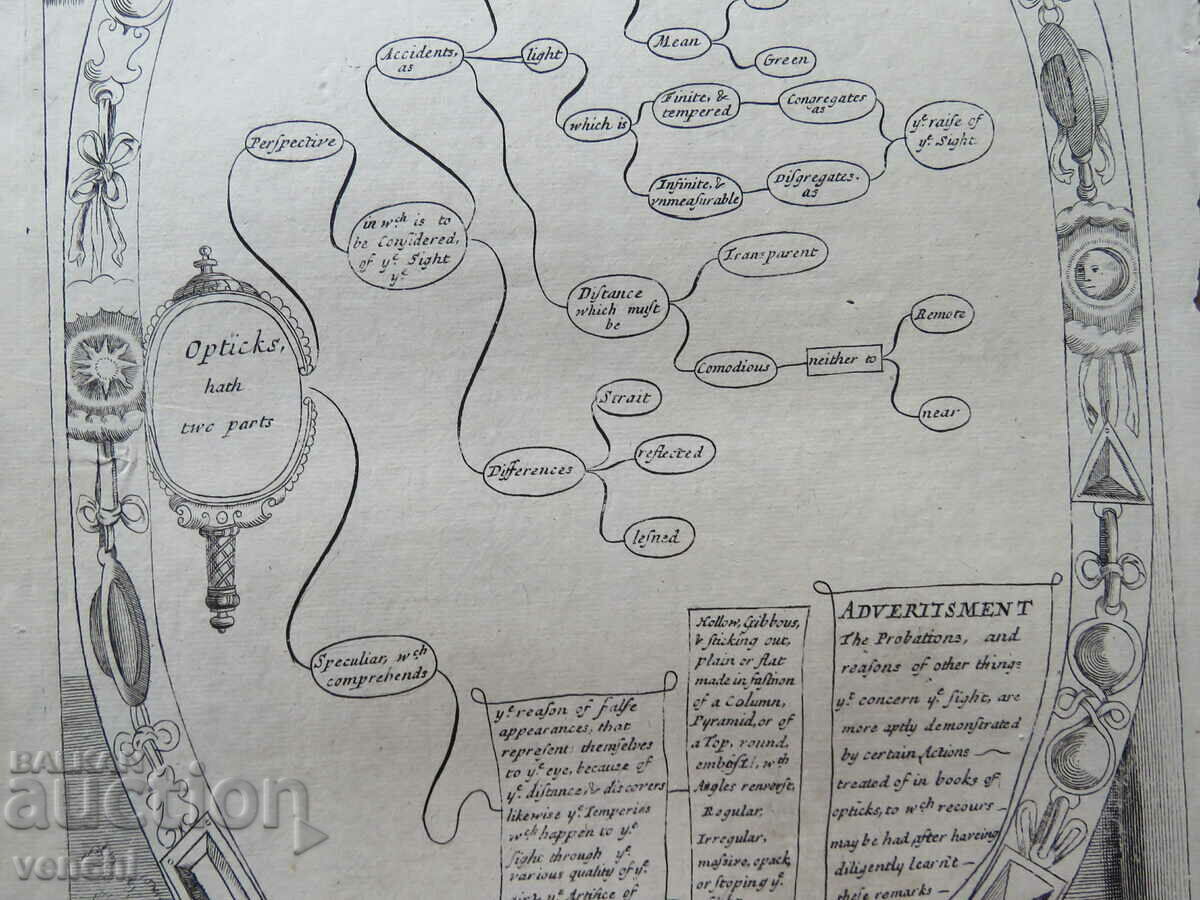 Accidents,
as
light
Mean
Green
which is
Finite, &
tempered
Congregates
as
yͤ raise of
yͤ Sight
Infinite, &
vnmeasurable
Diſgregates,
as
Perſpective
in wͨʰ is to
be Conſidered,
of yͤ Sight
yͤ
Diſtance
which muſt
be
Tranſparent
Comodious
neither to
Remote
near
Opticks,
hath
two parts
Differences
Strait
reflected
leſned
Speculiar, wͨʰ
comprehends
yͤ reaſon of falſe
appearances, that
repreſent themſelves
to yͤ eye, becauſe of
yͤ diſtance, & diſcovers
likewiſe yͤ Temperies
wͨʰ happen to yͤ
ſight through yͤ
various quality of yͤ
yͤ Artifice of
Hollow, Gibbous,
& ſticking out,
plain or flat
made in faſhion
of a Column,
Pyramid, or of
a Top, round,
emboſt, wͭʰ
Angles renverſt,
Regular,
Irregular,
maſsive, opack,
or ſtoping yͤ
ADVERTISMENT
The Probations, and
reaſons of other things
yͭ concern yͤ ſight, are
more aptly demonſtrated
by certain Actions —
treated of in books of
opticks, to wͨʰ recours —
may be had, after haveing
diligently learn't —
theſe remarks —
BALKAN
auction
venchi